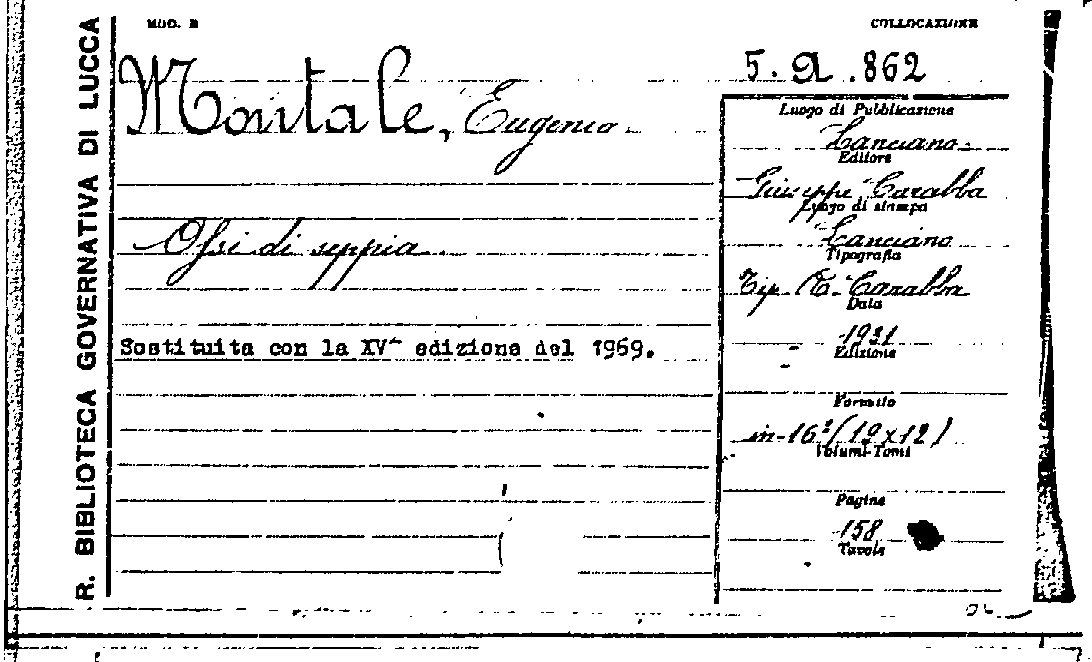 R. BIBLIOTECA GOVERNATIVA DI LUCCA
MOD. B
COLLOCAZIONE
5. A .862
Montale, Eugenio.
Ossi di seppia
Sostituita con la XV^ edizione del 1969.
Luogo di Pubblicazione
Lanciano
Editore
Giuseppe Carabba
Luogo di stampa
Lanciano
Tipografia
Tip. R. Carabba
Data
1931
Edizione
Formato
in-16º (19x12)
Volumi-Tomi
Pagine
158
Tavole